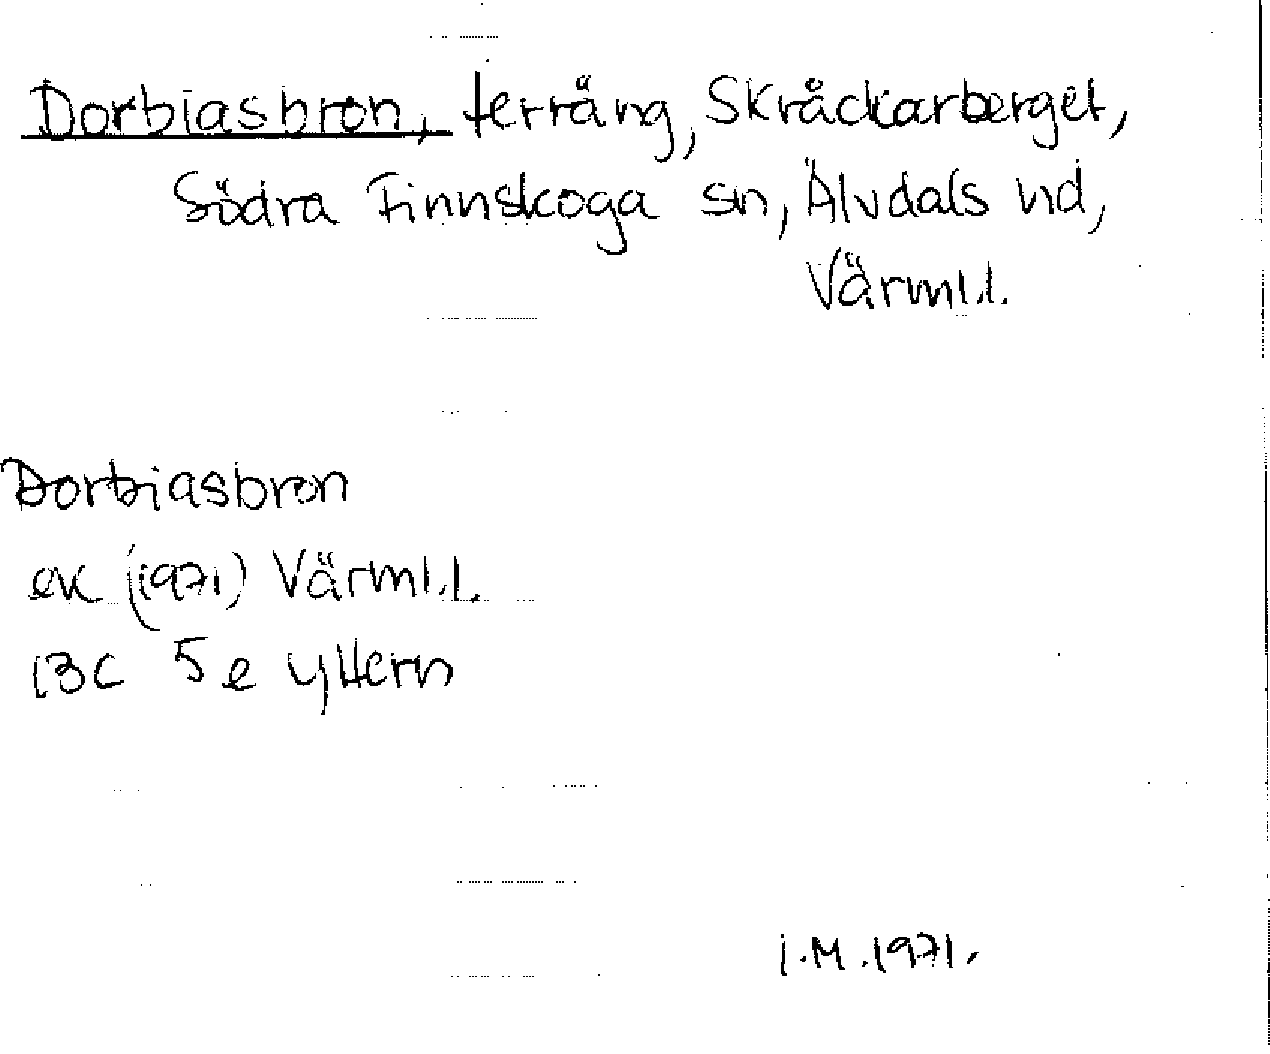 Dorbiasbron, terräng, Skråckarberget,
Södra Finnskoga sn, Älvdals hd,
Värml.l.
Dorbiasbron
ek (1971) Värml.l.
13C 5e yttern
I.M.1971.